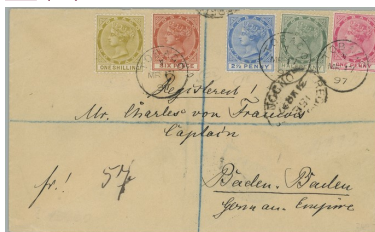 ONE SHILLING
SIX PENCE
2½ PENNY
ONE PENNY
97
Registered!
Mr. Charles von François
Captain
fr.!
Baden-Baden
German Empire